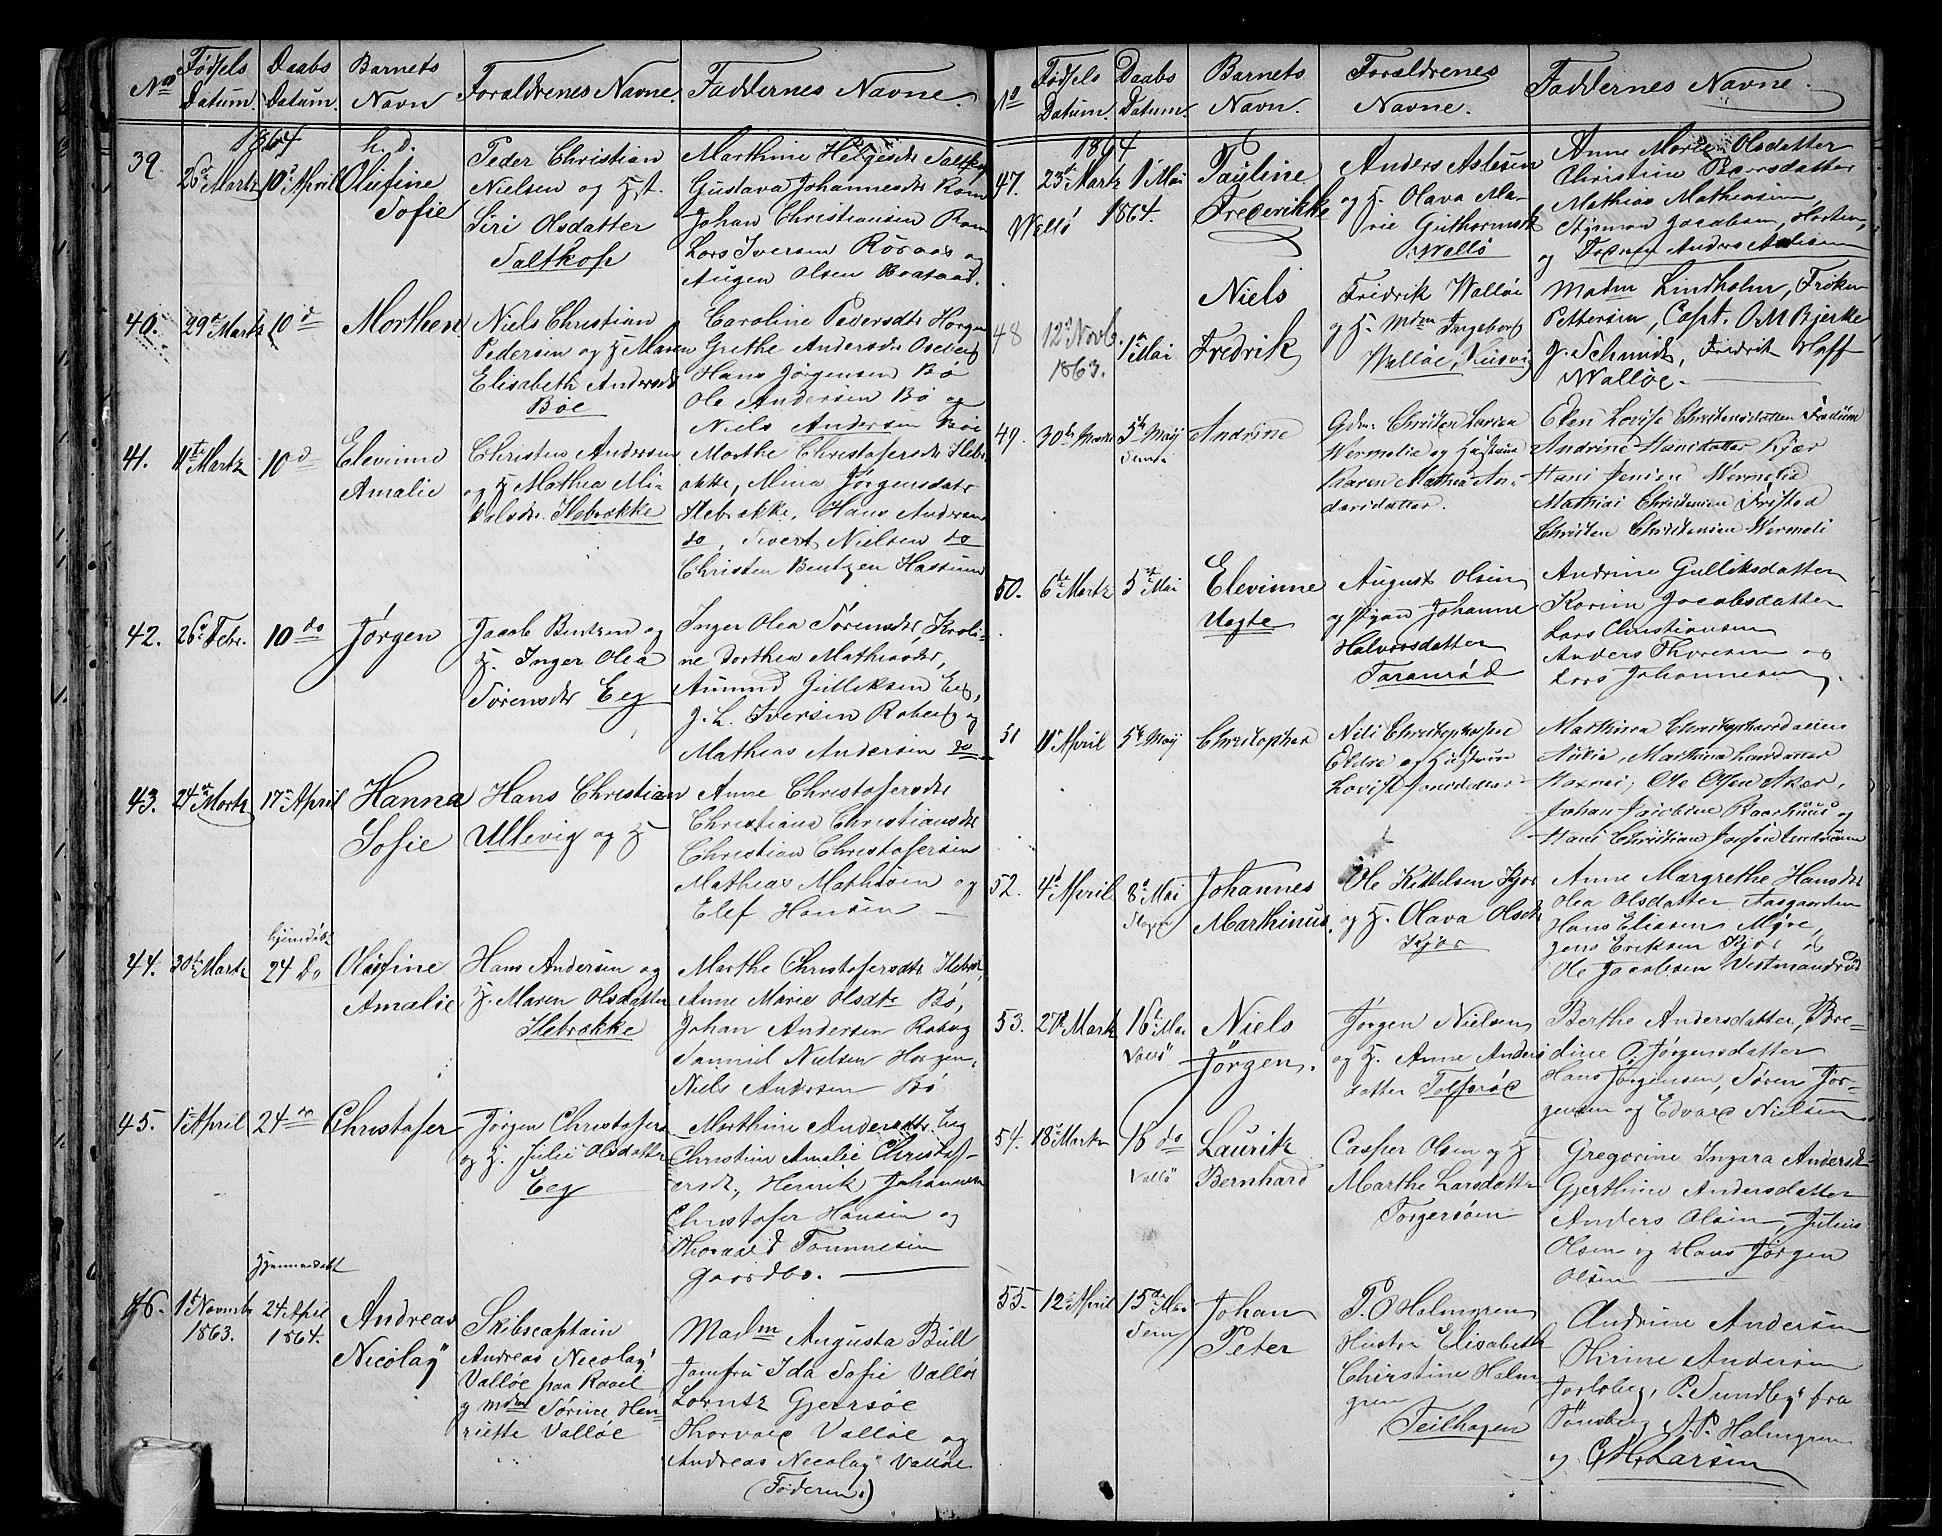 No Fødsels Datum. Daabs Datum. Barnets Navn Forældrenes Navne. Faddernes Navne.
1864 h. d.
39. 26de Martz 10de April Olufine Sofie
Peder Christian
Nielsen og H.
Siri Olsdatter
Saltkop
Marthine Helgesdtr Saltkop
Gustava Johannesdtr Rom
Johan Christiansen Rom
Lars Iversen Røraas og
Augen Olsen
40. 29de Martz 10de Morthen
Niels Christian
Pedersen og H Maren
Elisabeth Andersdtr
Bøe
Caroline Pedersdtr Horgen
Grethe Andersdtr Oseberg
Hans Jørgensen Bø
Ole Andersen Bø og
Niels Andersen Bøe
41. 11te Martz 10de Elevinne Amalie
Christen Andersen
og H Mathea Mi-
kelsdtr. Ilebrække
Marthe Christofersdtr Ilebr
ække, Mina Jørgensdatr
Ilebrække, Hans Andersen
do, Sivert Nielsen do
Christen Bentzen Hassum
42. 26de Febr. 10do Jørgen
Jacob Bentzen og
H. Inger Olea
Sørensdtr Eeg
Inger Olea Sørensdtr, Kroli-
ne Dorthea Mathiasdtr,
Amund Gulliksen Eeg,
J. L. Iversen Roberg og
Mathias Andersen do
43. 24de Martz 17de April Hanna Sofie
Hans Christian
Ullevig og H
Anne Christofersdtr
Christiana Christiansdtr
Christian Christofersen
Mathias Mathisen og
Elef Hansen
44. 30te Martz hjemdøbt 24 Do Olufine Amalie
Hans Andersen og
H. Maren Olsdatter
Ilebrække
Marthe Christofersdtr Ilebrk,
Anne Marie Olsdtr Bø,
Johan Andersen Roberg
Samuel Nielsen Horgen,
Niels Andersen Bø
45. 1ste April 24do Christofer
Jørgen Christofersen
og H. Julie Olsdatter
Eeg
Marthine Andersdtr. Eeg
Christine Amalie Christof-
ersdt., Henrik Johannesen
Christofer Hansen og
Thorvald Tommesen
Gaardbo.
46. 1ste Novmb 1863. Hjemmedøbt 24 April 1864. Andreas Nicolay
Skibscaptain
Andreas Necolay
Valløe paa Ravel
og Mdm Sørine Hen-
riette Valløe
Madm Augusta Bull
Jomfru Ida Sofie Valløe
Lorntz Gjersøe
Thorvald Valløe og
Andreas Necolay Valløe
(Faderen.)
No Fødsels Datum. Daabs Datum. Barnets Navn. Forældrenes Navne. Faddernes Navne.
1864
47. 23de Martz 1 Mai 1864. Pauline Frederikke
Wallø
Anders Aslesen
og H. Olava Ma-
rie Guthormsdt
Wallø
Anne Marie Olsdatter
Christine Pedersdatter
Mathias Mathiesen,
Styrmand Jacobsen, Horten,
og Anders Aslesen
48 12te Novb. 1863. 1de Mai Niels Fredrik
Fridrik Walløe
og H. Mdm Ingeborg
Walløe, Husvig
Madm Lindholm, Frøken
Pettersen, Capt. O M Bjerke
J. Schmidt, Fredrik Hoff
Walløe.
49. 30te Martz 5te Maij Sem Andrine
Gdm: Christen Larsen
Wermelie og Hustrue
Karen Mathea An-
dersdatter.
Elen Lovise Christensdatter Fadum
Andrine Hansdatter Kjær
Hans Jensen Wermelie
Mathias Christensen Fristad
Christen Christensen Wermeli
50. 6te Martz 5te Mai Elevinne Uegte
August Olsen
og Pigen Johanne
Halvorsdatter
Taranrød
Andrine Gulliksdatter
Karine Jacobsdatter
Lars Christiansen
Anders Thoresen og
Lars Johannesen.
51 11te April 5te Maij Christopher
Nils Christophersen
og Hustrue
Lovise
Marthina Christophersdatter
Marthina Larsdatter
Ole Olsen Skær,
Johan Jacobsen Baarhuus og
Hans Christian
52. 4de April 8de Mai Slagen Johannes Marthinus
Ole Kittelsen Kjær
og H. Olava Olsdtr
Kjær
Anne Margrethe Hansdtr
Olea Olsdatter Aasgaarden
Hans Eliasen Myre,
Jens Eriksen Kjær og
Ole Jacobsen Vestmandrød
53. 27de Martz 16de Mai Vallø Niels Jørgen.
Jørgen Nielsen
og H. Anne Anders
datter Tolfsrød
Berthe Andersdatter, Bre-
dine O. Jørgensdatter
Hans Jørgensen, Søren Jør-
gensen og Edvard Nielsen
54. 18de Martz 16 do Vallø Laurik Bernhard
Casper Olsen og H
Marthe Larsdattr
Torgersøen
Gregorine Ingara Andersdt
Gjerthine Andersdatter
Anders Olsen, Julius
Olsen og Hans Jørgen
Olsen
55. 12te April 15de Mai Sem Johan Peter
P. O Holmgren
Hustru Elisabeth
Christine Holm
gren
Teilhagen
Andrine Andersen
Othine Andersen
Jarlsberg, P. Sundby fra
Tønsberg A. P. Holmgren
og C H Larsen